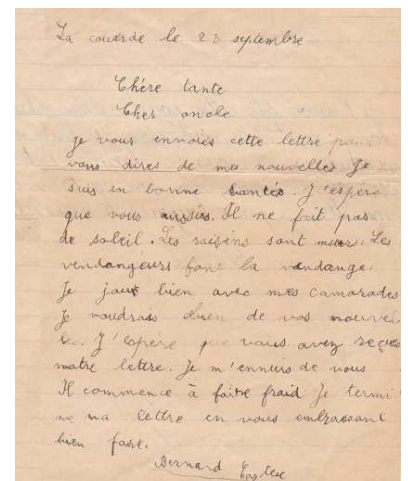 La couarde le 23 septembre
Chère tante
Cher oncle
je vous envoies cette lettre pour
vous dires de mes nouvelles Je
suis en bonne santés. J'espère
que vous aussis. Il ne fait pas
de soleil. Les raisins sont murs. Les
vendangeurs font la vendange.
Je joue bien avec mes camarades
Je voudrais bien de vos nouvel
J'espère que vous avez reçus
notre lettre. Je m'ennuis de vous
Il commence à faire fraid Je termi
ne ma lettre en vous embrassant
bien fort.
Bernard